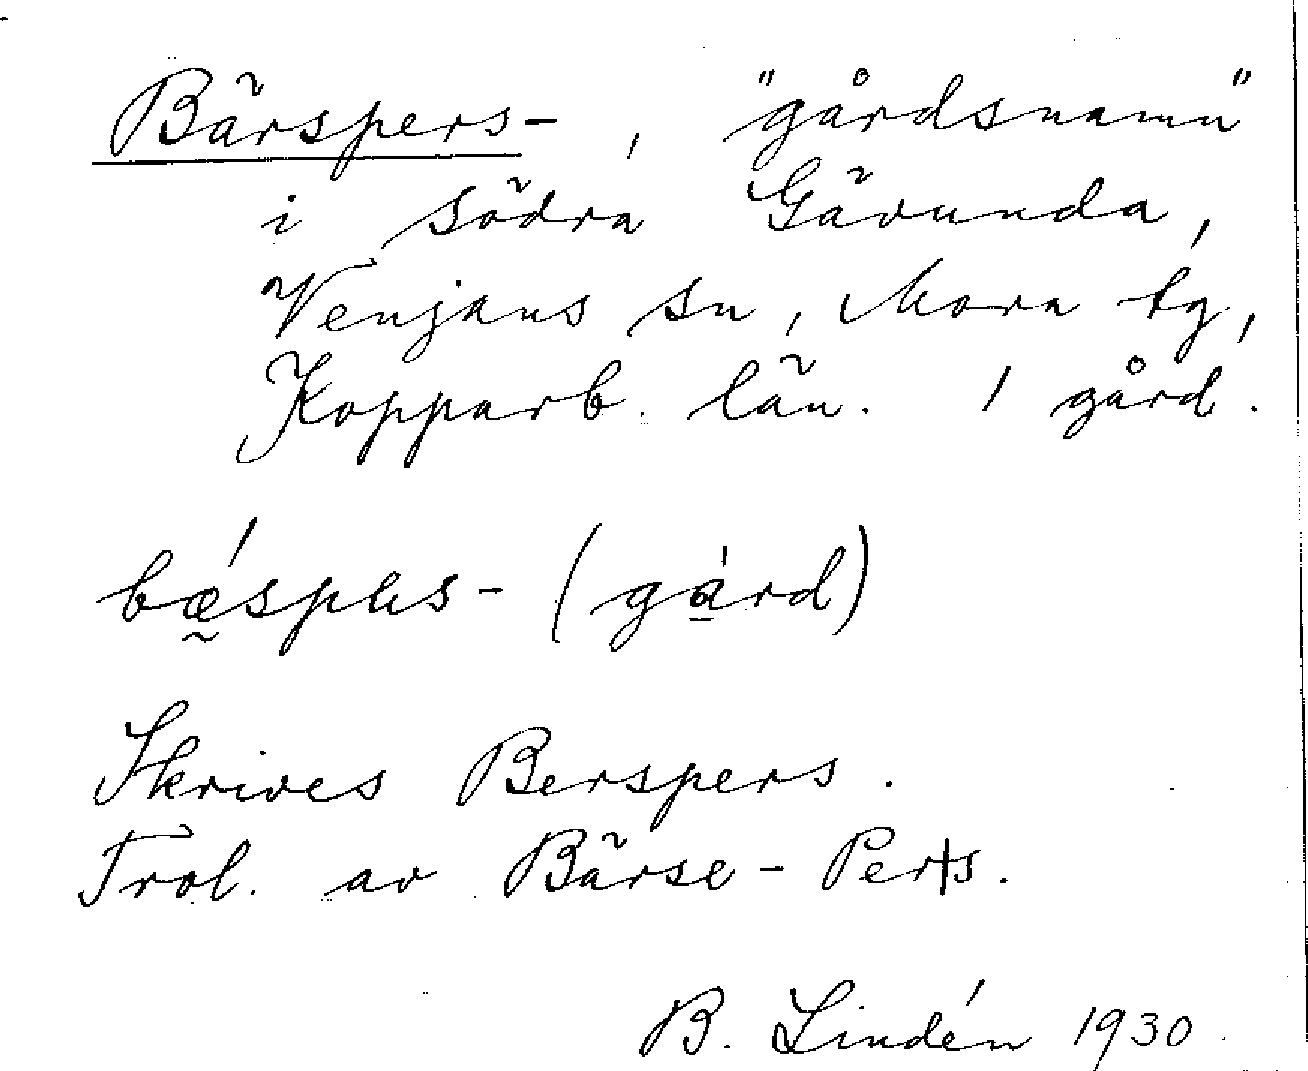 Bärspers-, "gårdsnamn"
i södra Gävunda,
Venjans sn, Mora tg,
Kopparb. län. 1 gård.
-(gård)
Skrives Berspers.
Trol. av Bärse-Pers.
B. Lindén 1930